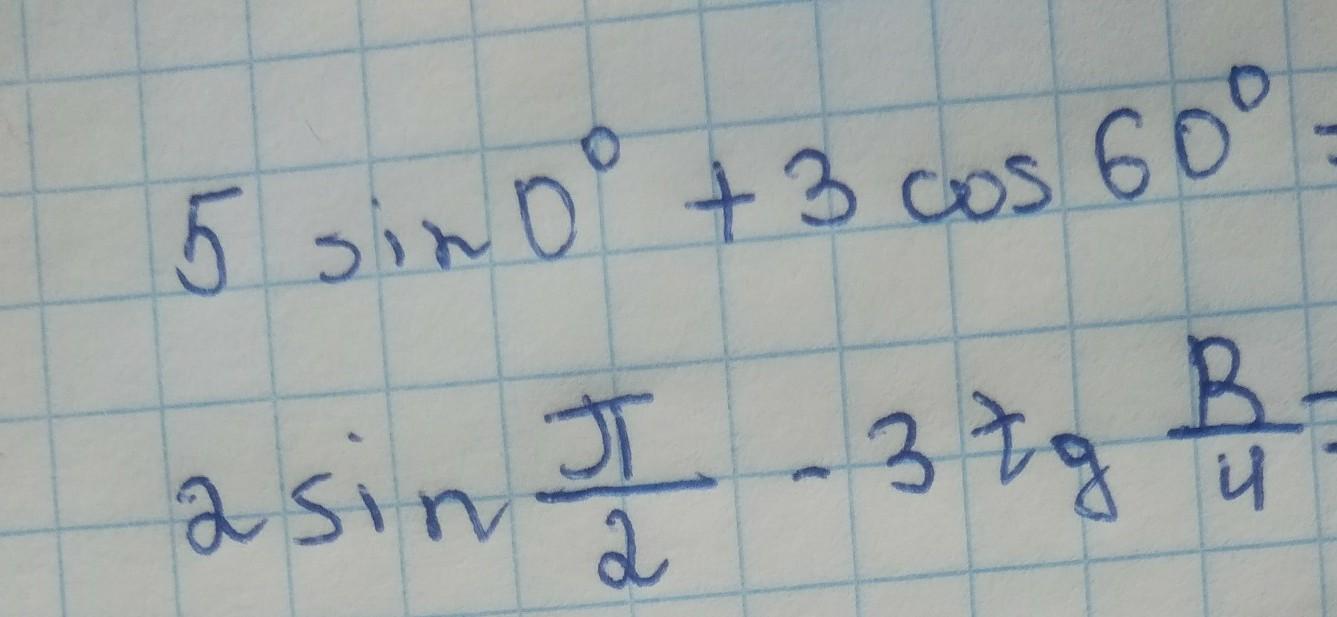 5 sin 0° + 3 cos 60° =
2 sin π/2 - 3 tg B/4 =